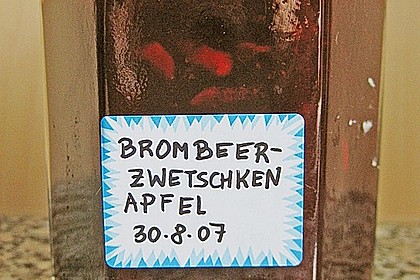 BROMBEER-
ZWETSCHKEN
APFEL
30.8.07